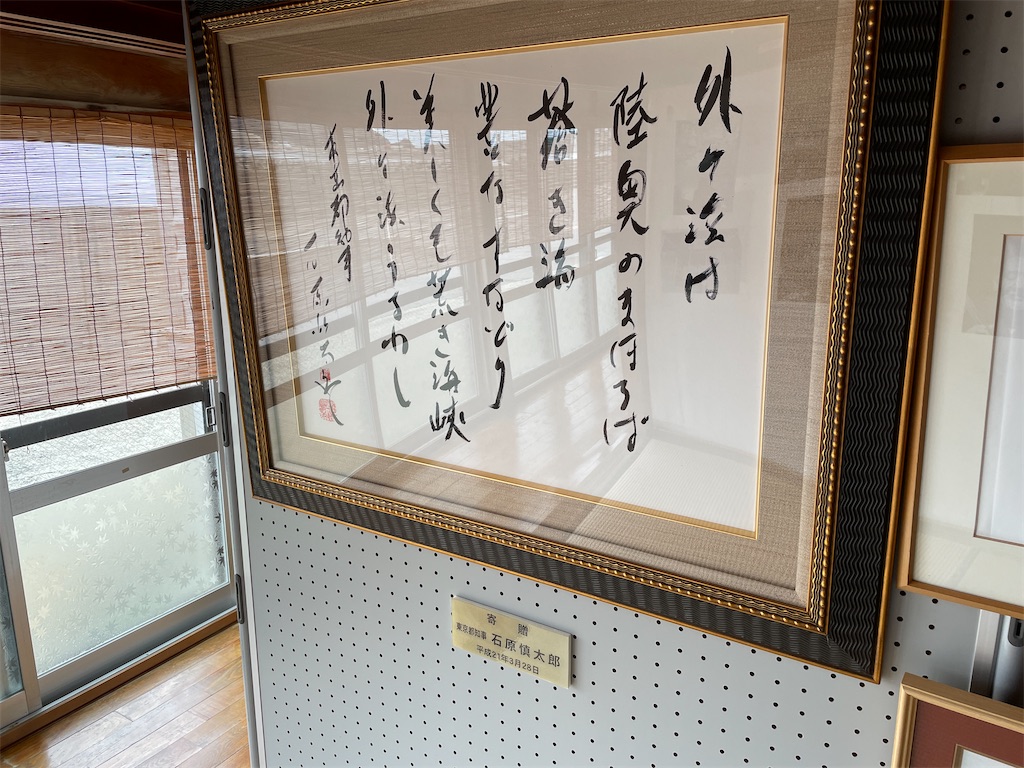 外ヶ濱は
陸奥のまほろば
き海
豊なすなどり
美しくも荒き海峡
外ヶ濱うるわし
東京都知事
石原慎太郎
寄贈
東京都知事 石原慎太郎
平成21年3月28日